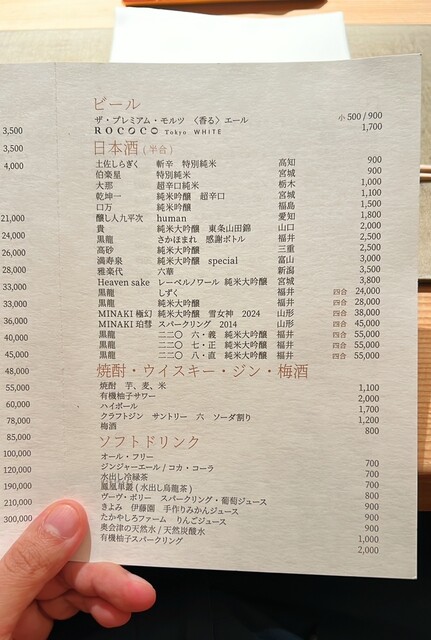 3,500
3,500
4,000
21,000
24,000
26,000
28,000
33,000
33,000
36,000
40,000
45,000
48,000
55,000
60,000
78,000
85,000
100,000
120,000
190,000
210,000
300,000
ビール
ザ・プレミアム・モルツ 〈香る〉エール 小 500 / 900
ROCOCO Tokyo WHITE 1,700
日本酒 (半合)
土佐しらぎく 斬辛 特別純米 高知 900
伯楽星 特別純米 宮城 900
大那 超辛口純米 栃木 1,000
乾坤一 純米吟醸 超辛口 宮城 1,100
口万 純米吟醸 福島 1,500
醸し人九平次 human 愛知 1,800
貴 純米大吟醸 東条山田錦 山口 2,000
黒龍 さかほまれ 感謝ボトル 福井 2,500
高砂 純米大吟醸 三重 2,500
満寿泉 純米大吟醸 special 富山 3,000
雅楽代 六華 新潟 3,500
Heaven sake レーベルノワール 純米大吟醸 宮城 3,800
黒龍 しずく 福井 四合 24,000
黒龍 純米大吟醸 福井 四合 28,000
MINAKI 極幻 純米大吟醸 雪女神 2024 山形 四合 38,000
MINAKI 珀彗 スパークリング 2014 山形 四合 45,000
黒龍 二二〇 六・義 純米大吟醸 福井 四合 55,000
黒龍 二二〇 七・正 純米大吟醸 福井 四合 55,000
黒龍 二二〇 八・直 純米大吟醸 福井 四合 55,000
焼酎・ウイスキー・ジン・梅酒
焼酎 芋、麦、米 1,100
有機柚子サワー 2,000
ハイボール 1,700
クラフトジン サントリー 六 ソーダ割り 1,200
梅酒 800
ソフトドリンク
オール・フリー 700
ジンジャーエール / コカ・コーラ 700
水出し冷緑茶 700
鳳凰単叢 (水出し烏龍茶) 800
ヴーヴ・ボリー スパークリング・葡萄ジュース 900
きよみ 伊藤園 手作りみかんジュース 900
たかやしろファーム りんごジュース 900
奥会津の天然水 / 天然炭酸水 1,000
有機柚子スパークリング 2,000